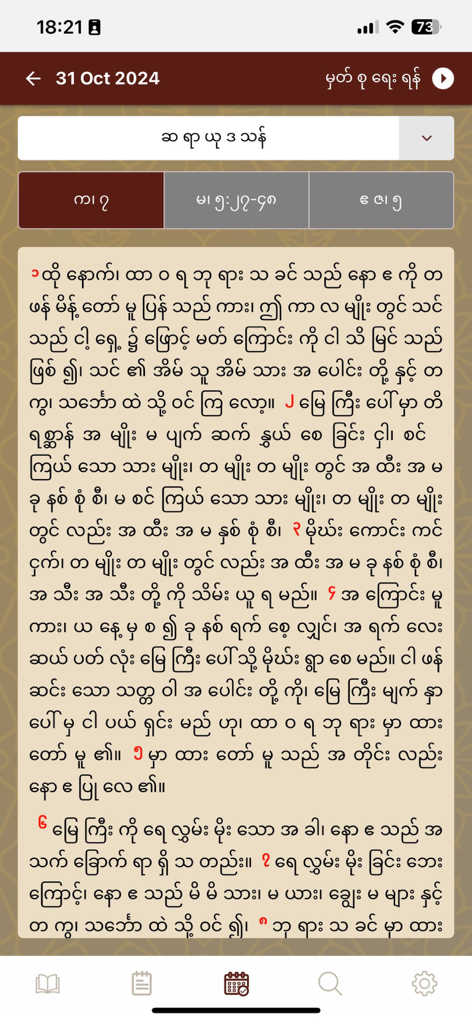 18:21
73
31 Oct 2024
မှတ် စု ရေး ရန်
ဆ ရာ ယု ဒ သန်
က၊ ၇
မ၊ ၅:၂၇-၄၈
ဧ ဇ၊ ၅
၁ထို နောက်၊ ထာ ဝ ရ ဘု ရား သ ခင် သည် နော ဧ ကို တ
ဖန် မိန့် တော် မူ ပြန် သည် ကား၊ ဤ ကာ လ မျိုး တွင် သင်
သည် ငါ့ ရှေ့ ၌ ဖြောင့် မတ် ကြောင်း ကို ငါ သိ မြင် သည်
ဖြစ် ၍၊ သင် ၏ အိမ် သူ အိမ် သား အ ပေါင်း တို့ နှင့် တ
ကွ၊ သင်္ဘော ထဲ သို့ ဝင် ကြ လော့။ ၂ မြေ ကြီး ပေါ် မှာ တိ
ရစ္ဆာန် အ မျိုး မ ပျက် ဆက် နွှယ် စေ ခြင်း ငှါ၊ စင်
ကြယ် သော သား မျိုး၊ တ မျိုး တ မျိုး တွင် အ ထီး အ မ
ခု နစ် စုံ စီ၊ မ စင် ကြယ် သော သား မျိုး၊ တ မျိုး တ မျိုး
တွင် လည်း အ ထီး အ မ နှစ် စုံ စီ၊ ၃ မိုဃ်း ကောင်း ကင်
ငှက်၊ တ မျိုး တ မျိုး တွင် လည်း အ ထီး အ မ ခု နစ် စုံ စီ၊
အ သီး အ သီး တို့ ကို သိမ်း ယူ ရ မည်။ ၄ အ ကြောင်း မူ
ကား၊ ယ နေ့ မှ စ ၍ ခု နစ် ရက် စေ့ လျှင်၊ အ ရက် လေး
ဆယ် ပတ် လုံး မြေ ကြီး ပေါ် သို့ မိုဃ်း ရွာ စေ မည်။ ငါ ဖန်
ဆင်း သော သတ္တ ဝါ အ ပေါင်း တို့ ကို၊ မြေ ကြီး မျက် နှာ
ပေါ် မှ ငါ ပယ် ရှင်း မည် ဟု၊ ထာ ဝ ရ ဘု ရား မှာ ထား
တော် မူ ၏။ ၅ မှာ ထား တော် မူ သည် အ တိုင်း လည်း
နော ဧ ပြု လေ ၏။
၆ မြေ ကြီး ကို ရေ လွှမ်း မိုး သော အ ခါ၊ နော ဧ သည် အ
သက် ခြောက် ရာ ရှိ သ တည်း။ ၇ ရေ လွှမ်း မိုး ခြင်း ဘေး
ကြောင့်၊ နော ဧ သည် မိ မိ သား၊ မ ယား၊ ချွေး မ များ နှင့်
တ ကွ၊ သင်္ဘော ထဲ သို့ ဝင် ၍၊ ၈ ဘု ရား သ ခင် မှာ ထား